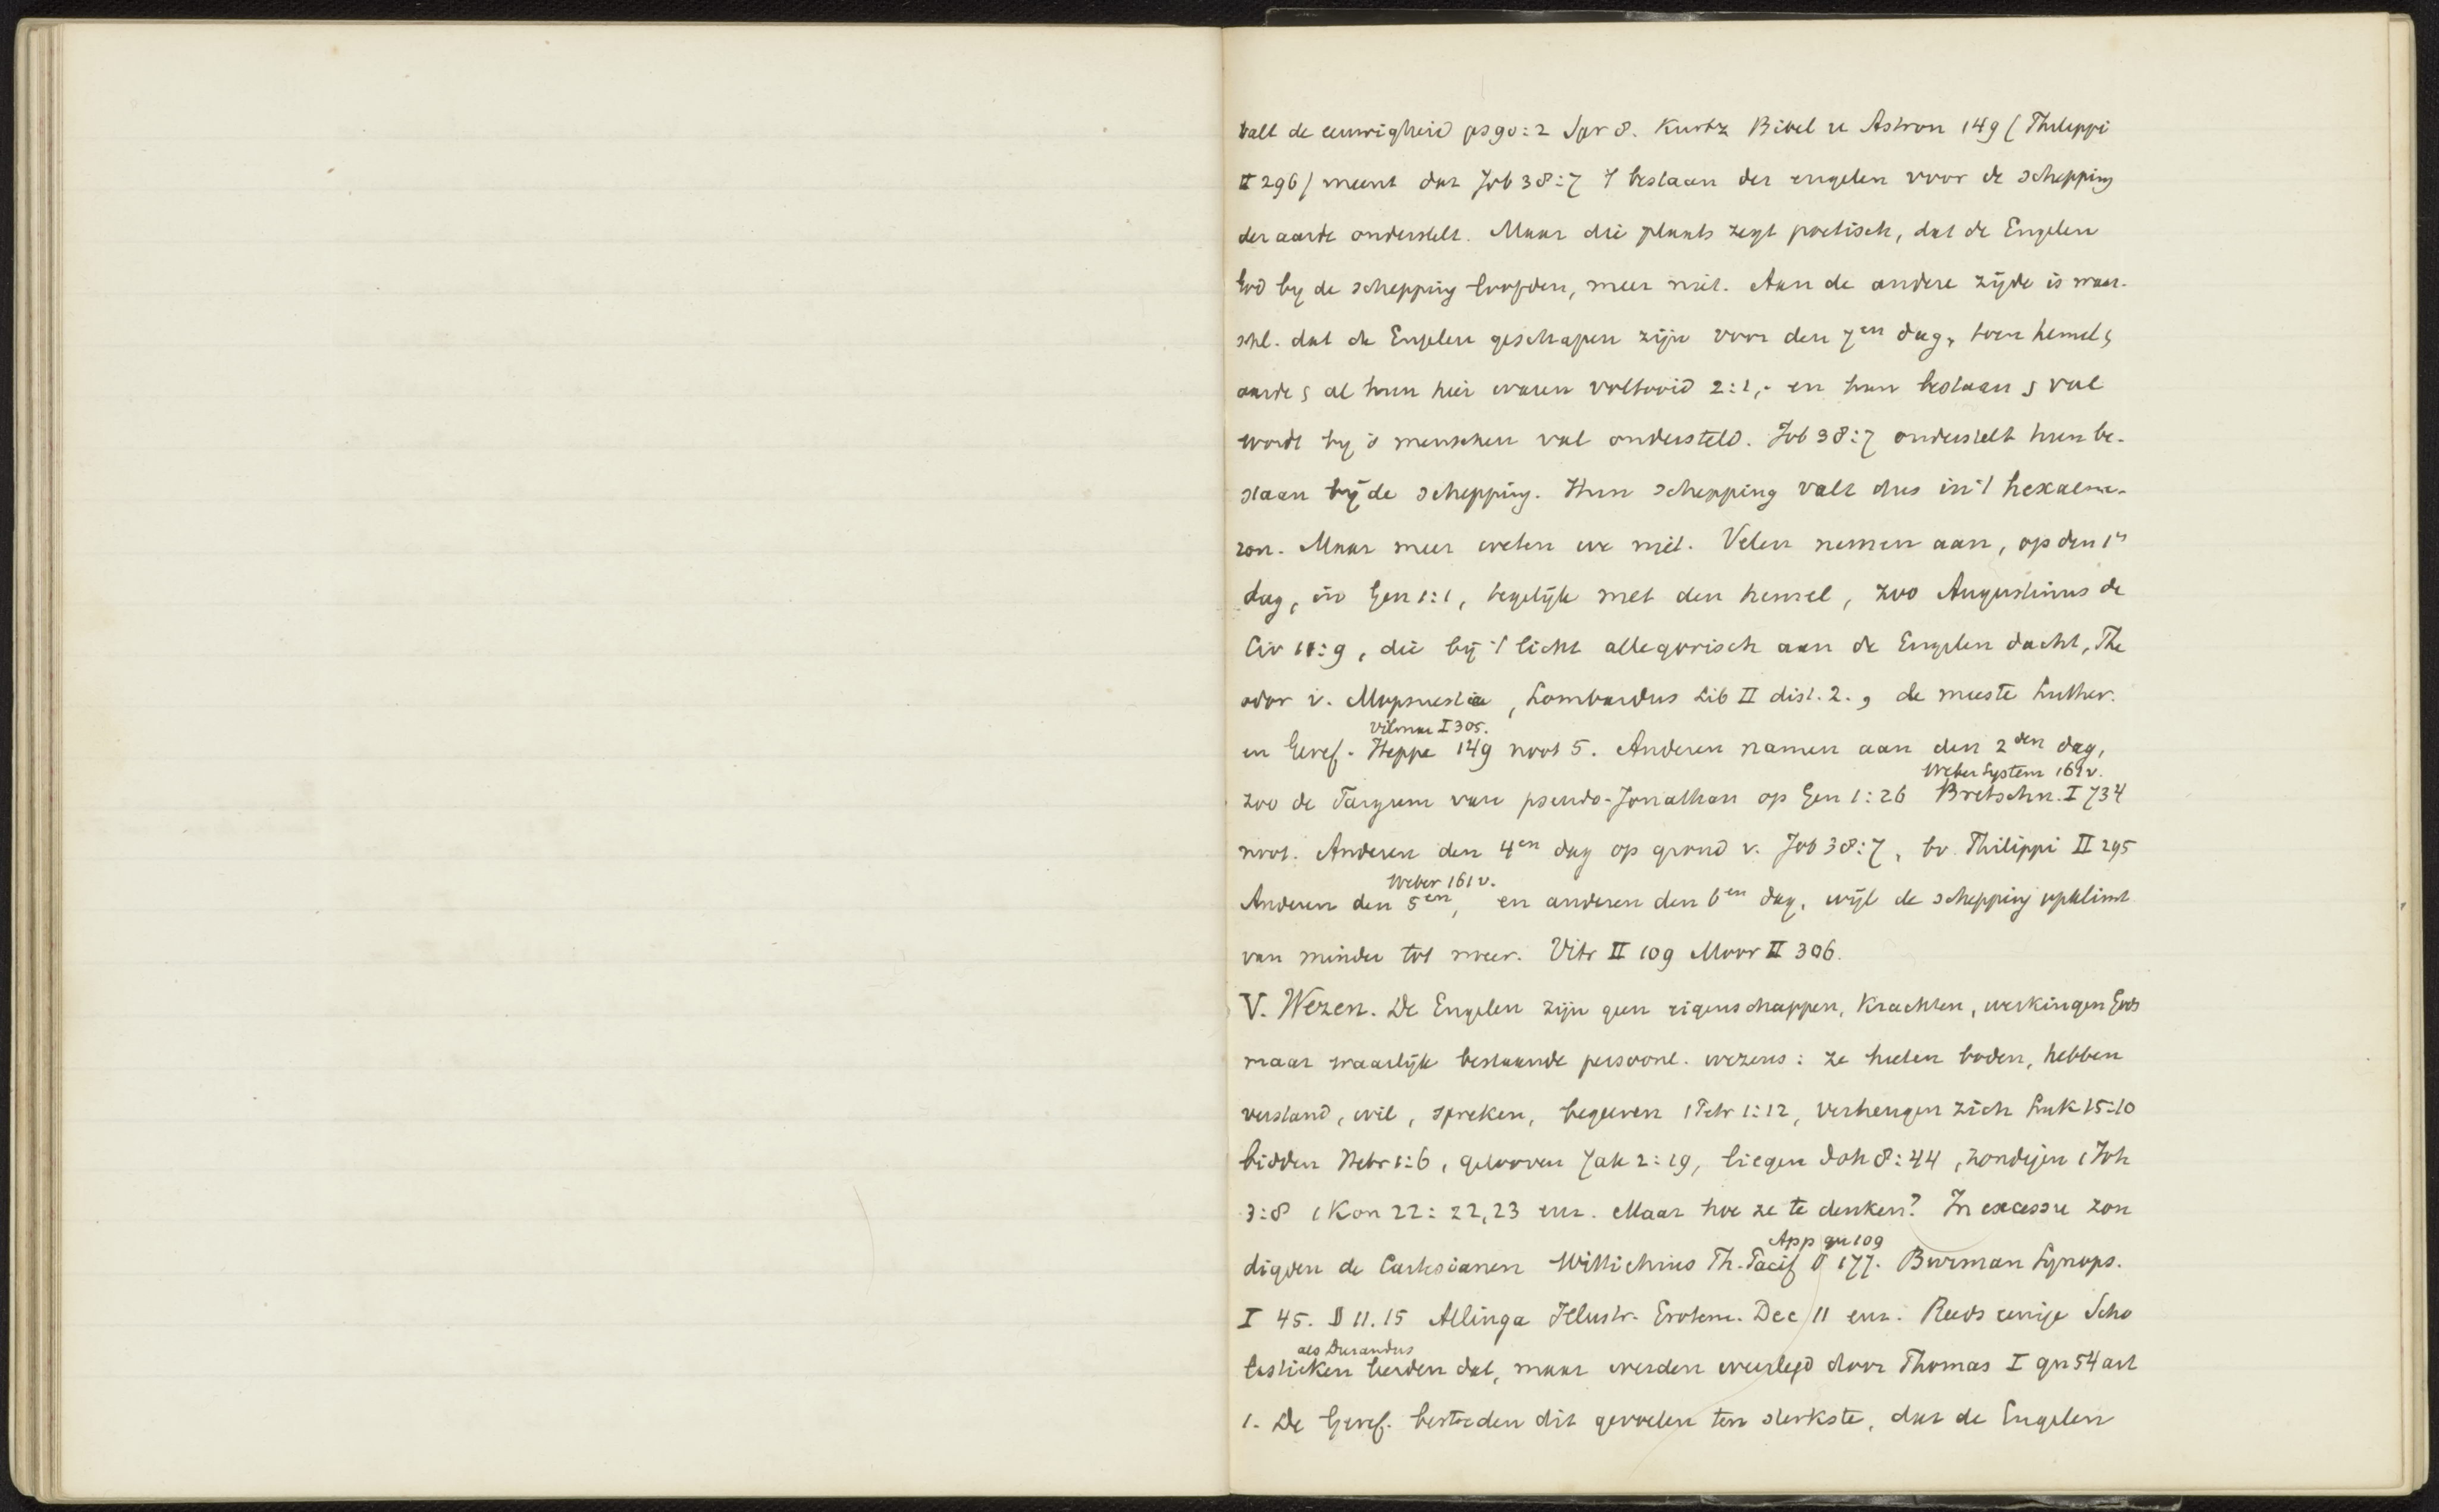 valt de eeuwigheid ps 90:2 Spr 8. Kurtz Bibel u Astron 149 (Philippi
II 296) meent dat Job 38:7 't bestaan der engelen voor de schepping
der aarde onderstelt. Maar die plaats zegt poetisch, dat de Engelen
God bij de schepping loofden, meer niet. Aan de andere zijde is waar-
schl. dat de Engelen geschapen zijn voor den 7en dag, toen hemel &
aarde & al hun heir waren voltooid 2:1, en hun bestaan & val
wordt bij 's menschen val ondersteld. Job 38:7 onderstelt hun be-
staan bij de schepping. Hun schepping valt dus in 't hexaeme-
ron. Maar meer weten we niet. Velen nemen aan, op den 1n
dag, in Gen 1:1, tegelijk met den hemel, zoo Augustinus de
Civ 11:9, die bij 't licht allegorisch aan de Engelen dacht, The
odor v. Mopsuestia, Lombardus Lib II dist. 2., de meeste Luther.
Vilmar I 305.
en Geref. Heppe 149 noot 5. Anderen namen aan den 2den dag,
Weber System 161v.
zoo de Targum van pseudo-Jonathan op Gen 1:26 Bretschn. I 734
noot. Anderen den 4en dag op grond v. Job 38:7, bv. Philippi II 295
Weber 161v.
Anderen den 5en, en anderen den 6en dag, wijl de schepping opklimt
van minder tot meer. Vitr II 109 Moor II 306.
V. Wezen. De Engelen zijn geen eigenschappen, Krachten, werkingen Gods
maar waarlijk bestaande persoonl. wezens: ze heeten boden, hebben
verstand, wil, spreken, begeeren 1 Petr 1:12, verheugen zich Luk 15:10
bidden Hebr 1:6, gelooven Jak 2:19, liegen Joh 8:44, zondigen 1 Joh
3:8 1 Kon 22:22,23 enz. Maar hoe ze te denken? In excessu zon
App qu 109
digden de Cartesianen Wittichius Th. Pacif § 177. Burman Synops.
I 45. § 11.15 Allinga Illustr. Erotem. Dec 11 enz. Reeds eenige Scho
als Durandus
lastieken leerden dat, maar werden weerlegd door Thomas I qu 54 art
1. De Geref. bestreden dit gevoelen ten sterkste, dat de Engelen